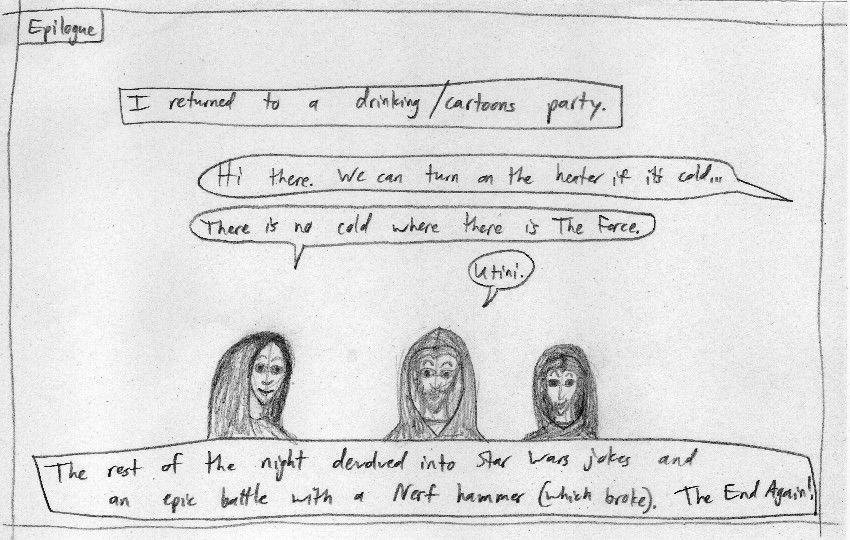 Epilogue
I returned to a drinking/cartoons party.
Hi there. We can turn on the heater if it's cold...
There is no cold where there is The Force.
Utini.
The rest of the night devolved into Star Wars jokes and
an epic battle with a Nerf hammer (which broke). The End Again!